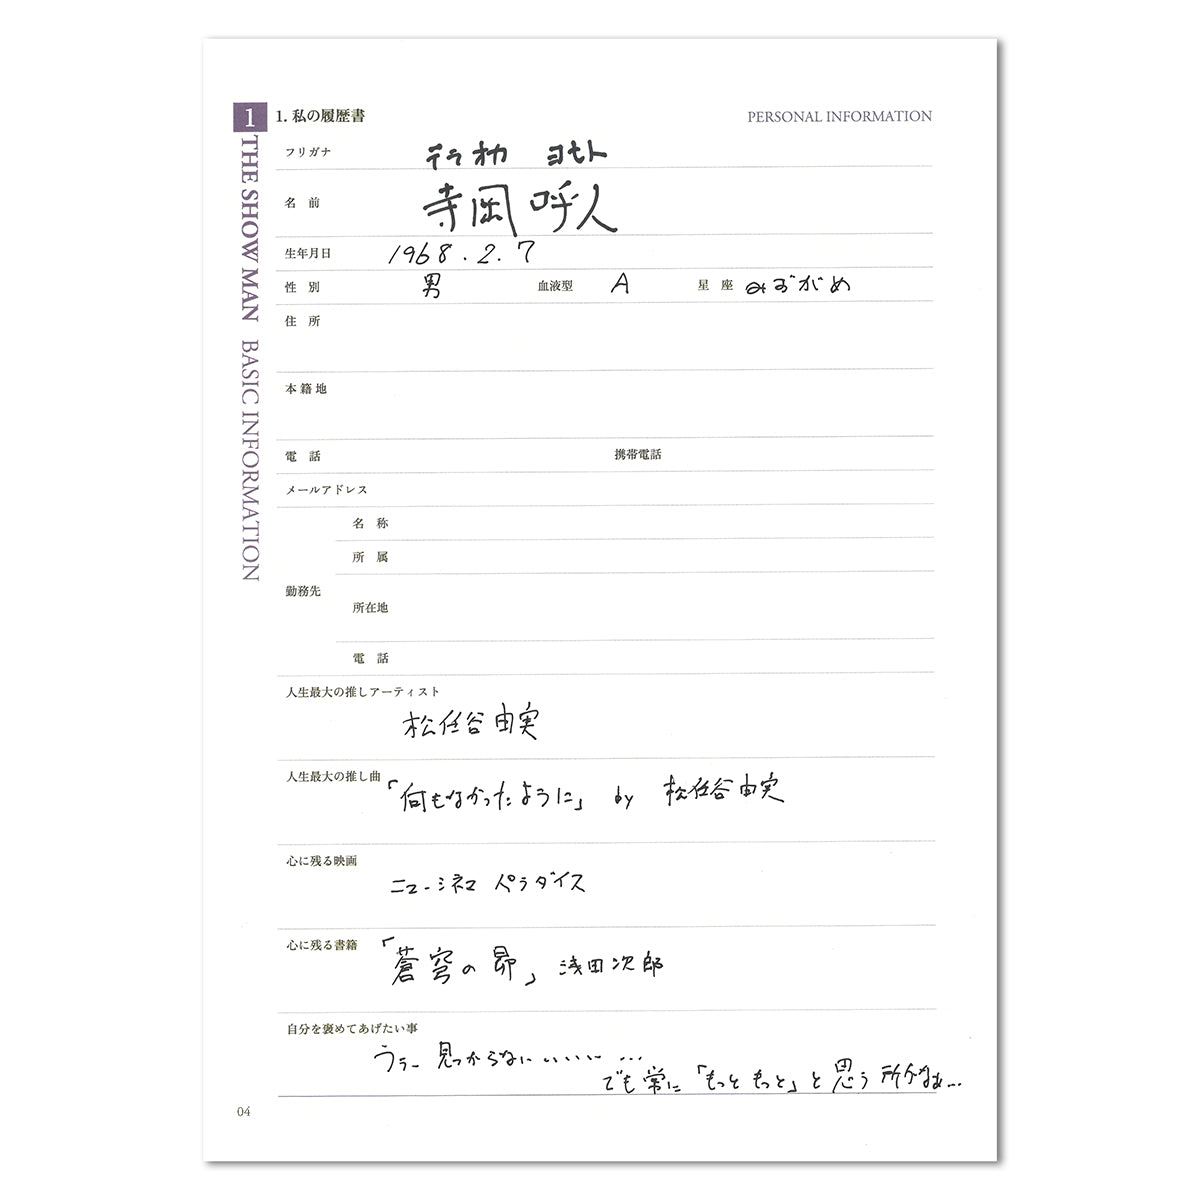 1
1. 私の履歴書
PERSONAL INFORMATION
THE SHOW MAN BASIC INFORMATION
フリガナ テラオカ ヨヒト
名 前 寺岡 呼人
生年月日 1968.2.7
性 別 男 血液型 A 星 座 みずがめ
住 所
本 籍 地
電 話 携帯電話
メールアドレス
勤務先
名 称
所 属
所在地
電 話
人生最大の推しアーティスト
松任谷由実
人生最大の推し曲
「何もなかったように」 by 松任谷由実
心に残る映画
ニューシネマ パラダイス
心に残る書籍
「蒼穹の昴」 浅田次郎
自分を褒めてあげたい事
うぅー 見つからないいいいい…
でも常に「もっともっと」と思う所かなぁ…
04